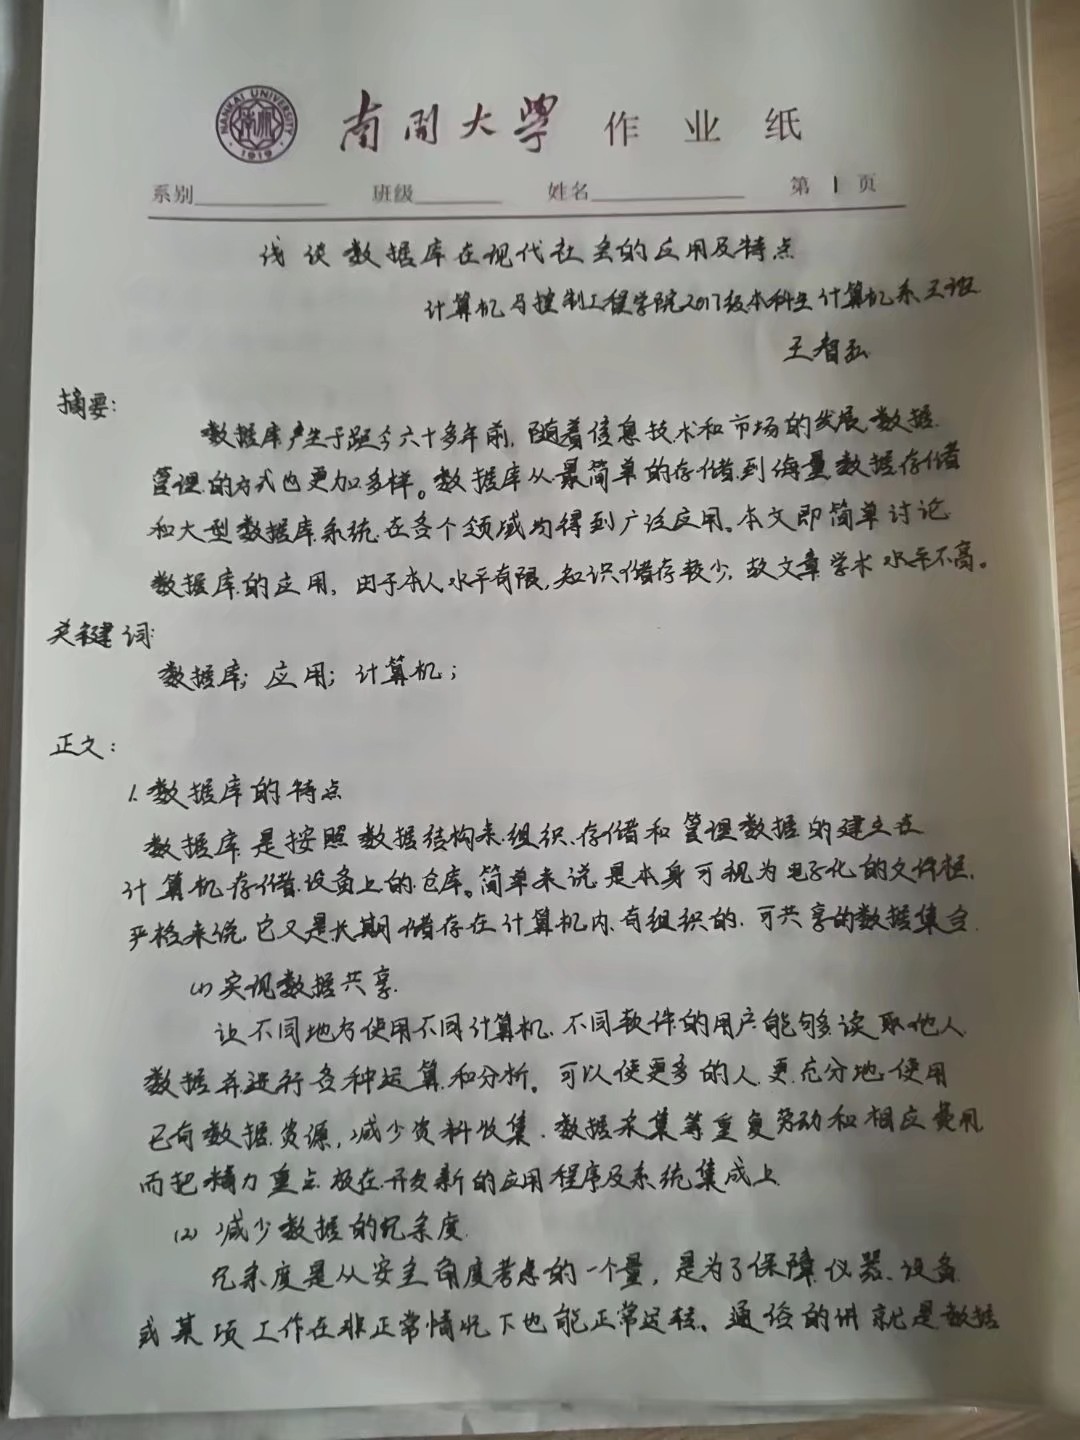 NANKAI UNIVERSITY
1919
南开大学 作业纸
系别 班级 姓名 第 1 页
浅谈数据库在现代社会的应用及特点
计算机与控制工程学院2017级本科生计算机系王班
王智弘
摘要:
数据库产生于距今六十多年前,随着信息技术和市场的发展,数据
管理的方式也更加多样。数据库从最简单的存储到海量数据存储
和大型数据库系统在各个领域均得到广泛应用。本文即简单讨论
数据库的应用,由于本人水平有限,知识储存较少,故文章学术水平不高。
关键词:
数据库; 应用; 计算机;
正文:
1.数据库的特点
数据库是按照数据结构来组织、存储和管理数据的建立在
计算机存储设备上的仓库。简单来说是本身可视为电子化的文件柜,
严格来说,它又是长期储存在计算机内、有组织的、可共享的数据集合.
(1)实现数据共享.
让不同地方使用不同计算机、不同软件的用户能够读取他人
数据并进行各种运算和分析。可以使更多的人更充分地使用
已有数据资源,减少资料收集、数据采集等重复劳动和相应费用,
而把精力重点放在开发新的应用程序及系统集成上.
(2)减少数据的冗余度.
冗余度是从安全角度考虑的一个量,是为了保障仪器、设备
或某项工作在非正常情况下也能正常运转。通俗的讲就是数据